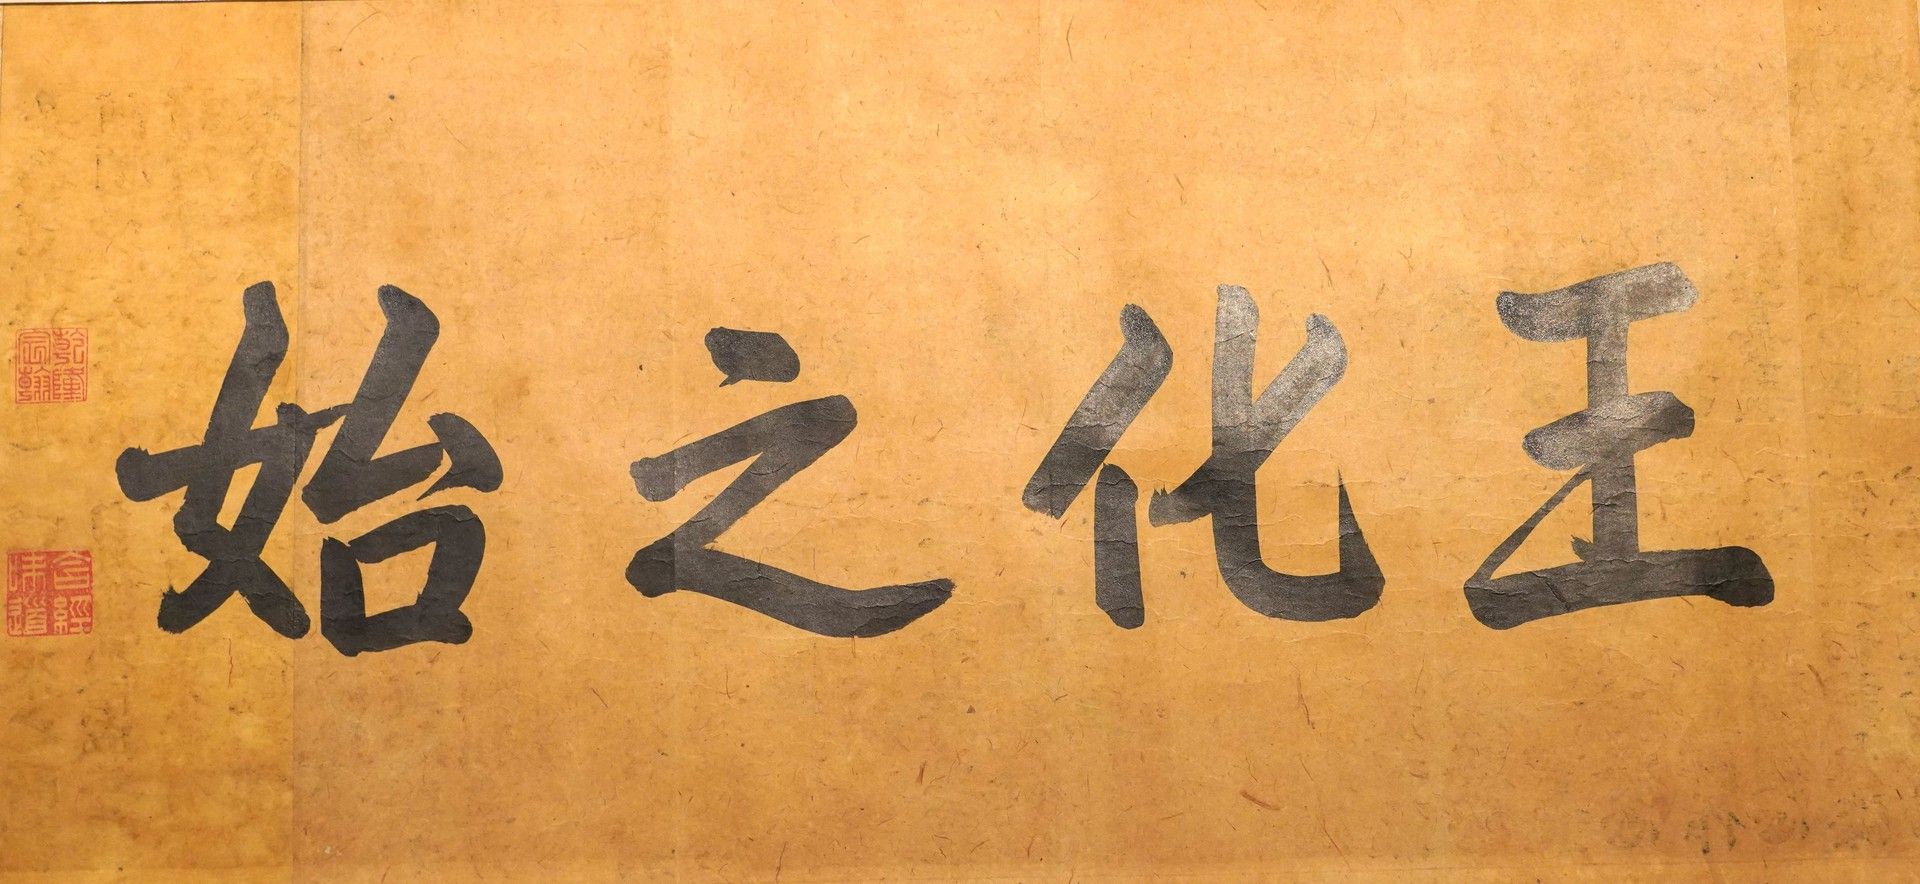 王化之始
乾隆宸翰
含經味道